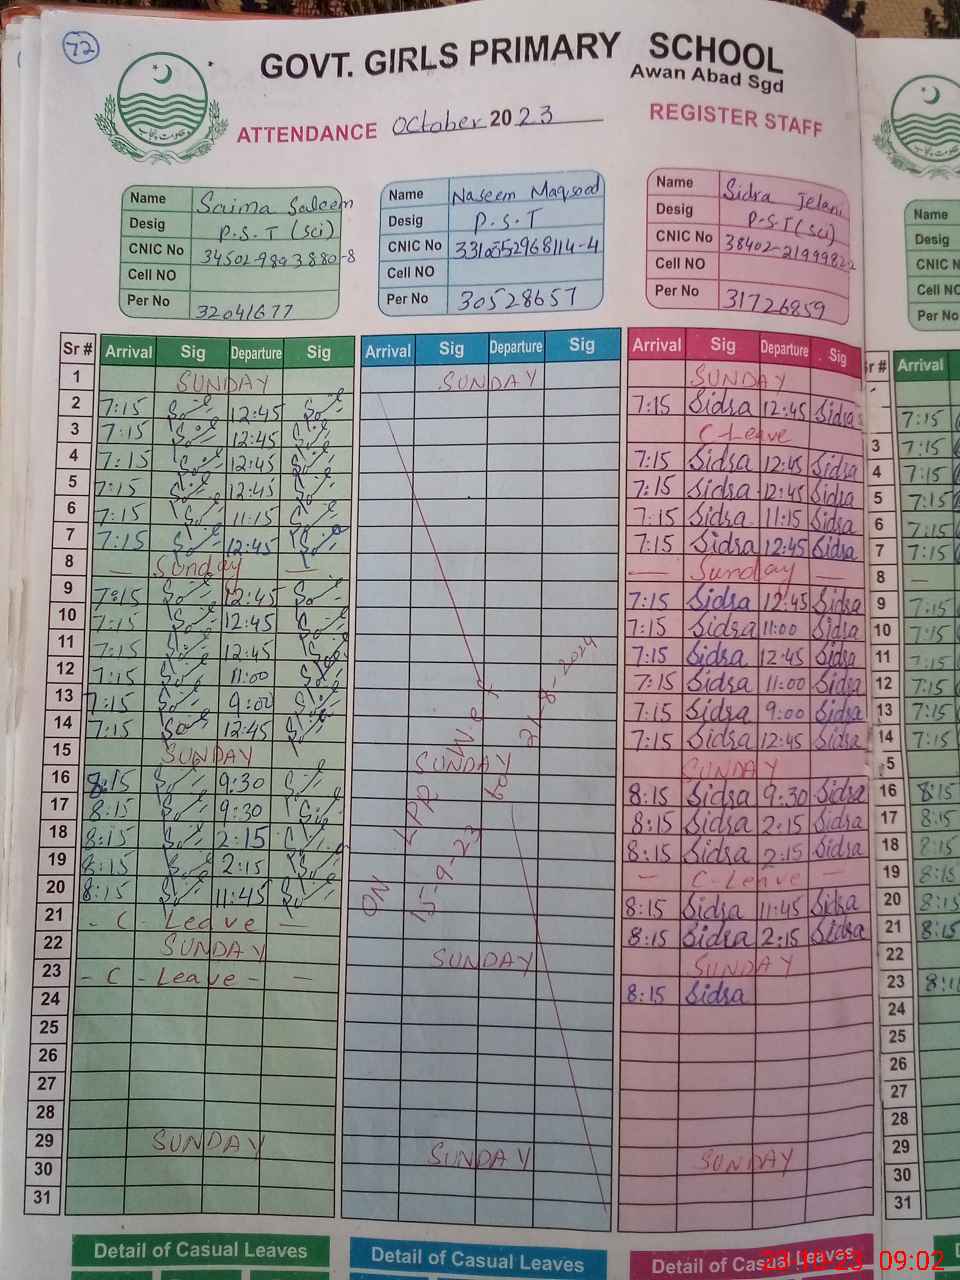 72
GOVT. GIRLS PRIMARY SCHOOL
Awan Abad Sgd
ATTENDANCE October 2023 REGISTER STAFF
حکومت پنجاب
Name Saima Saleem
Desig P.S.T (Sci)
CNIC No 34502-9893880-8
Cell NO
Per No 32041677
Name Naseem Maqsood
Desig P.S.T
CNIC No
Cell NO
Per No 30528657
Name Sidra Jelani
Desig P.S.T (Sci)
CNIC No
Cell NO
Per No 31726859
Name
Desig
CNIC N
Cell NO
Per No
Sr # Arrival Sig Departure Sig Arrival Sig Departure Sig Arrival Sig Departure Sig r # Arrival
1 SUNDAY SUNDAY SUNDAY
2 7:15 12:45 7:15 Sidsa 12:45 Sidsa 7:15
3 7:15 12:45 C-Leave 3 7:15
4 7:15 12:45 7:15 Sidsa 12:45 Sidsa 4 7:15
5 7:15 12:45 7:15 Sidsa 12:45 Sidsa 5 7:15
6 7:15 11:15 7:15 Sidsa 11:15 Sidsa 6 7:15
7 7:15 12:45 7:15 Sidsa 12:45 Sidsa 7 7:15
8 — Sunday — — Sunday — 8 —
9 7:15 12:45 7:15 Sidsa 12:45 Sidsa 9 7:15
10 7:15 12:45 7:15 Sidsa 11:00 Sidsa 10 7:15
11 7:15 12:45 7:15 Sidsa 12:45 Sidsa 11 7:15
12 7:15 11:00 7:15 Sidsa 11:00 Sidsa 12 7:15
13 7:15 9:00 7:15 Sidsa 9:00 Sidsa 13 7:15
14 7:15 12:45 7:15 Sidsa 12:45 Sidsa 14 7:15
15 SUNDAY SUNDAY SUNDAY 5
16 8:15 9:30 8:15 Sidsa 9:30 Sidsa 16 8:15
17 8:15 9:30 8:15 Sidsa 2:15 Sidsa 17 8:15
18 8:15 2:15 8:15 Sidsa 2:15 Sidsa 18 8:15
19 8:15 2:15 — C-Leave — 19 8:15
20 8:15 11:45 8:15 Sidsa 11:45 Sidsa 20 8:15
21 - C - Leave — 8:15 Sidsa 2:15 Sidsa 21 8:15
22 SUNDAY SUNDAY SUNDAY 22
23 - C - Leave - — 8:15 Sidsa 23 8:1
24 24
25 25
26 26
27 27
28 28
29 SUNDAY SUNDAY SUNDAY 29
30 30
31 31
ON LPR w.e.f
15-9-23 to 21-8-2024
Detail of Casual Leaves Detail of Casual Leaves Detail of Casual Leaves
23-10-23 09:02